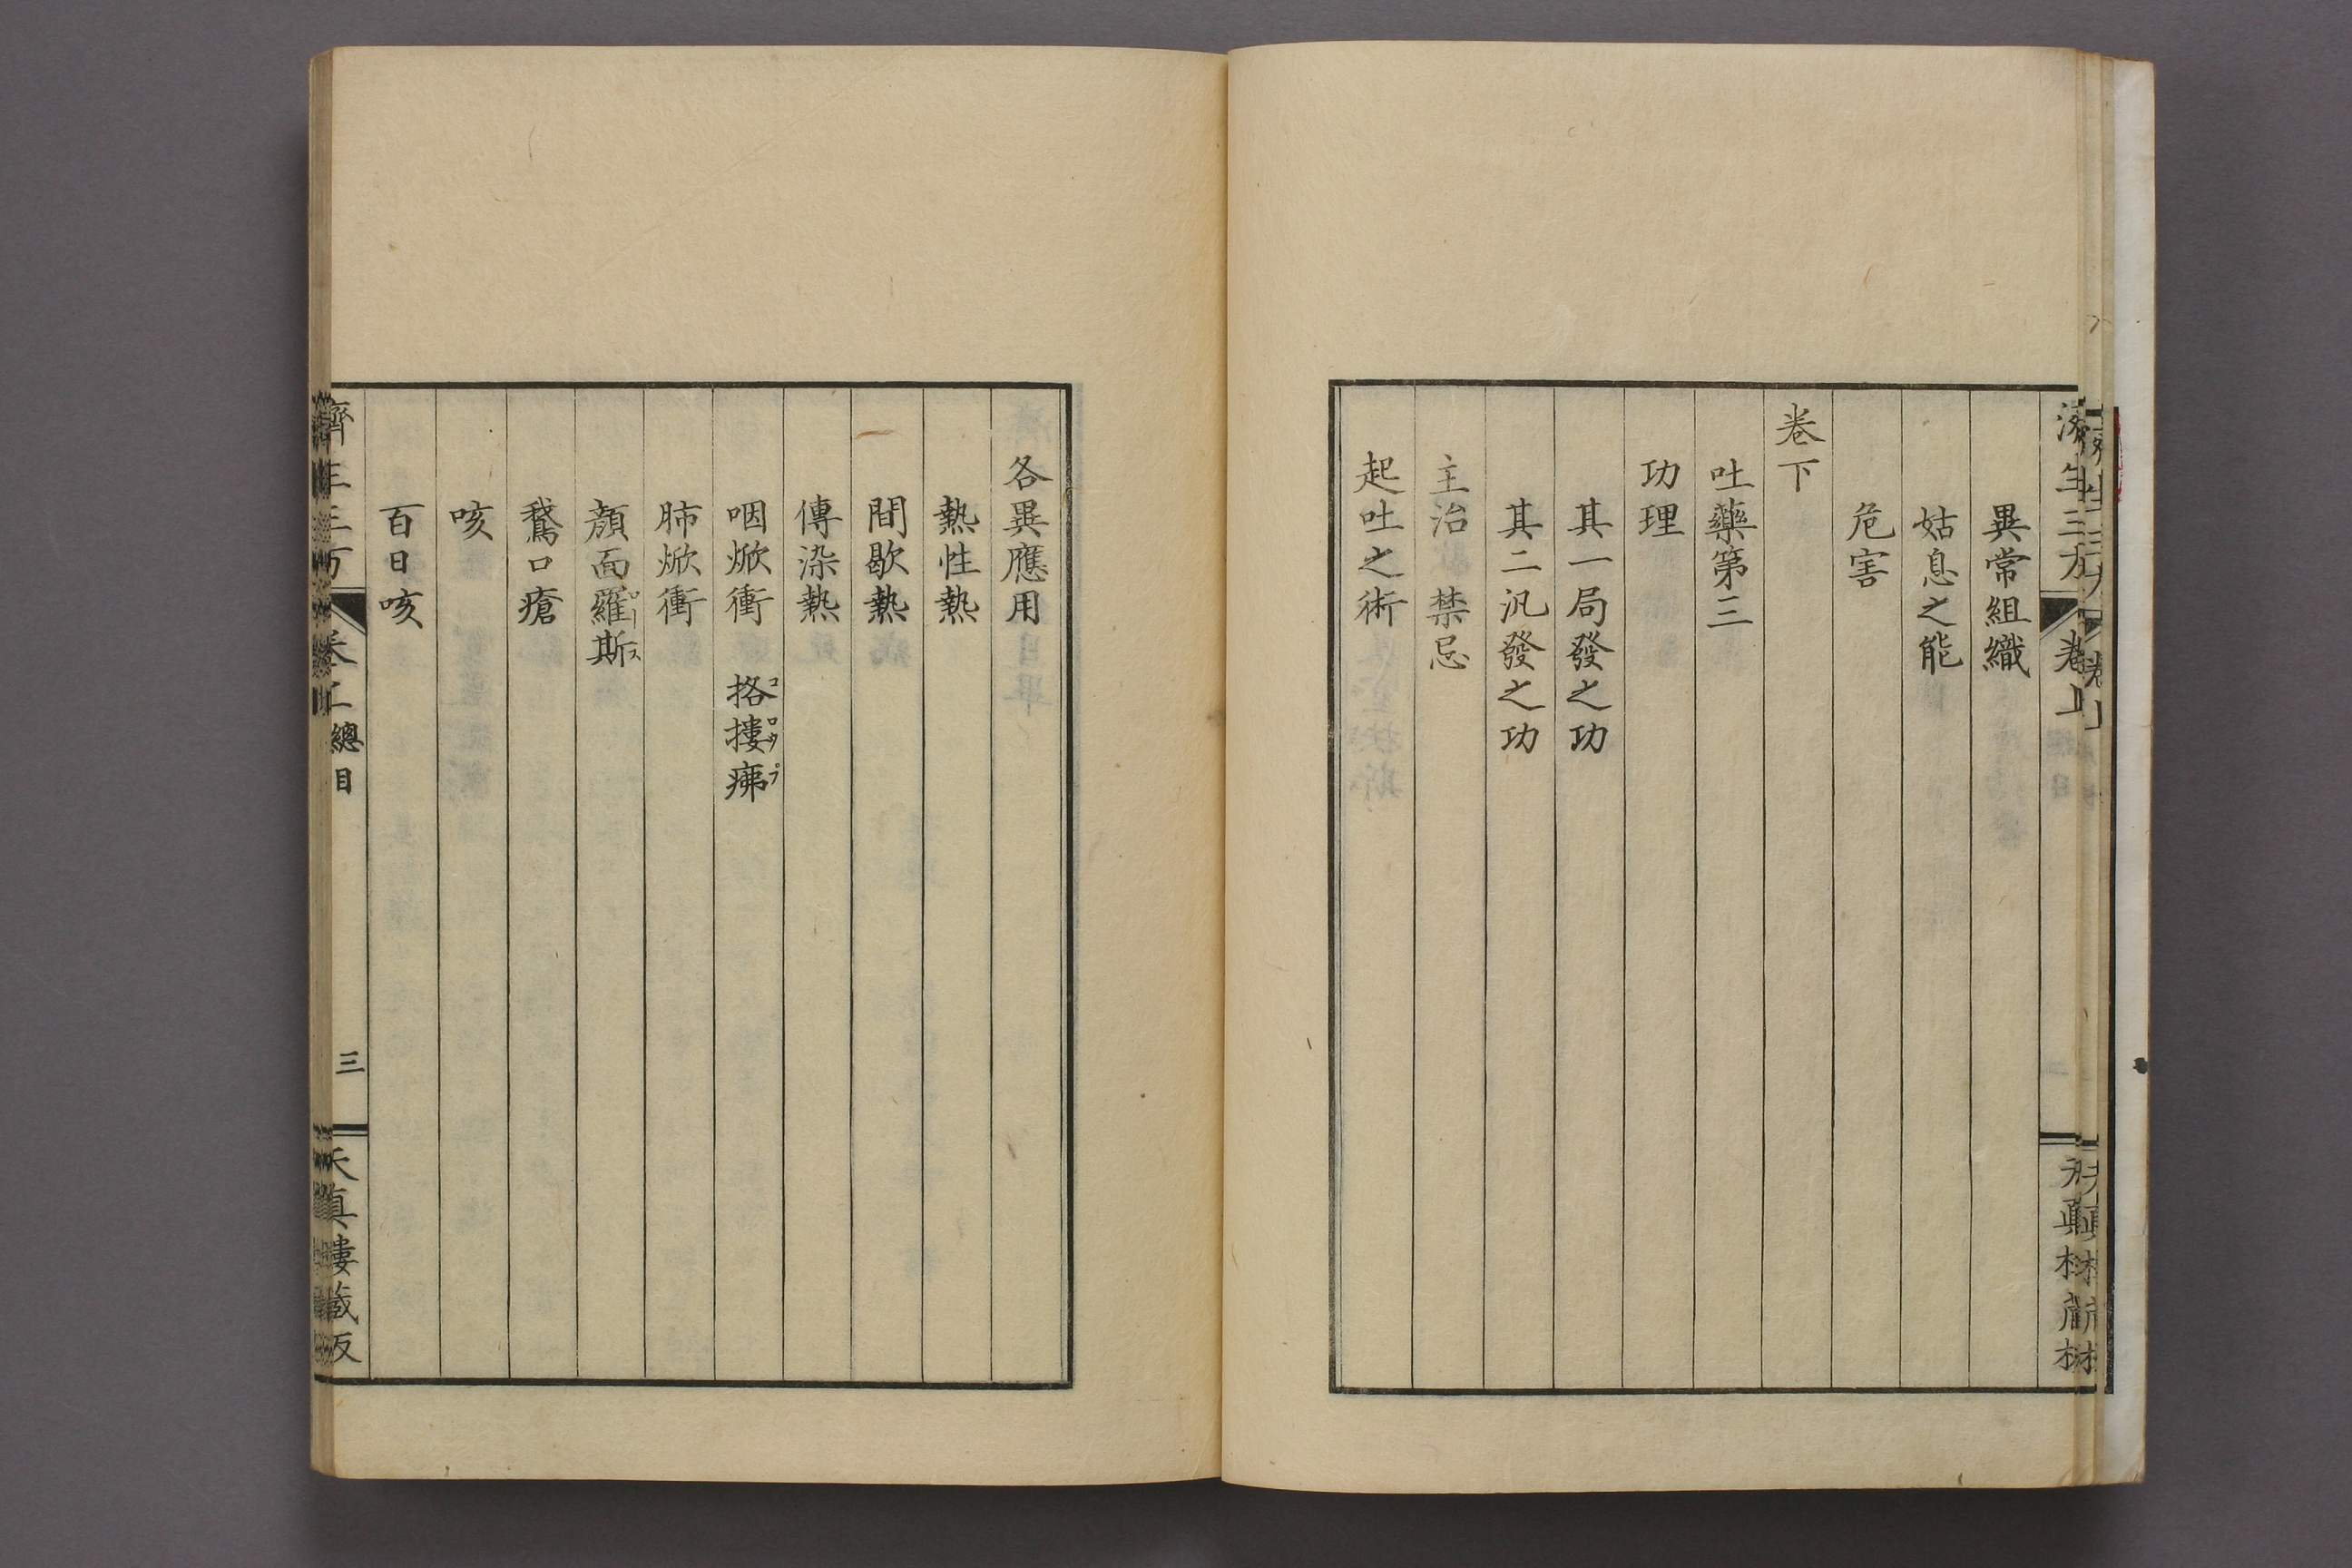 異常組織
姑息之能
危害
卷下
吐藥第三
功理
其一局發之功
其二汎發之功
主治 禁忌
起吐之術
各異應用
熱性熱
間歇熱
傳染熱
咽焮衝 挌摟疿
コロウプ
肺焮衝
顏面羅斯
ロース
鵞口瘡
咳
百日咳
濟生三方 卷上 總目 三 天真樓藏版